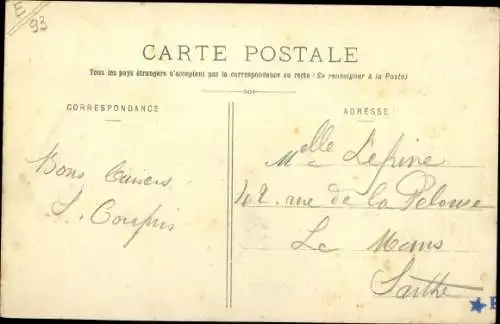 E
93
CARTE POSTALE
Tous les pays étrangers n'acceptent pas la correspondance au recto (Se renseigner à la Poste)
CORRESPONDANCE
ADRESSE
Melle Lepine
42. rue de la Pelouse
Le Mans
Sarthe
Bons baisers
S.